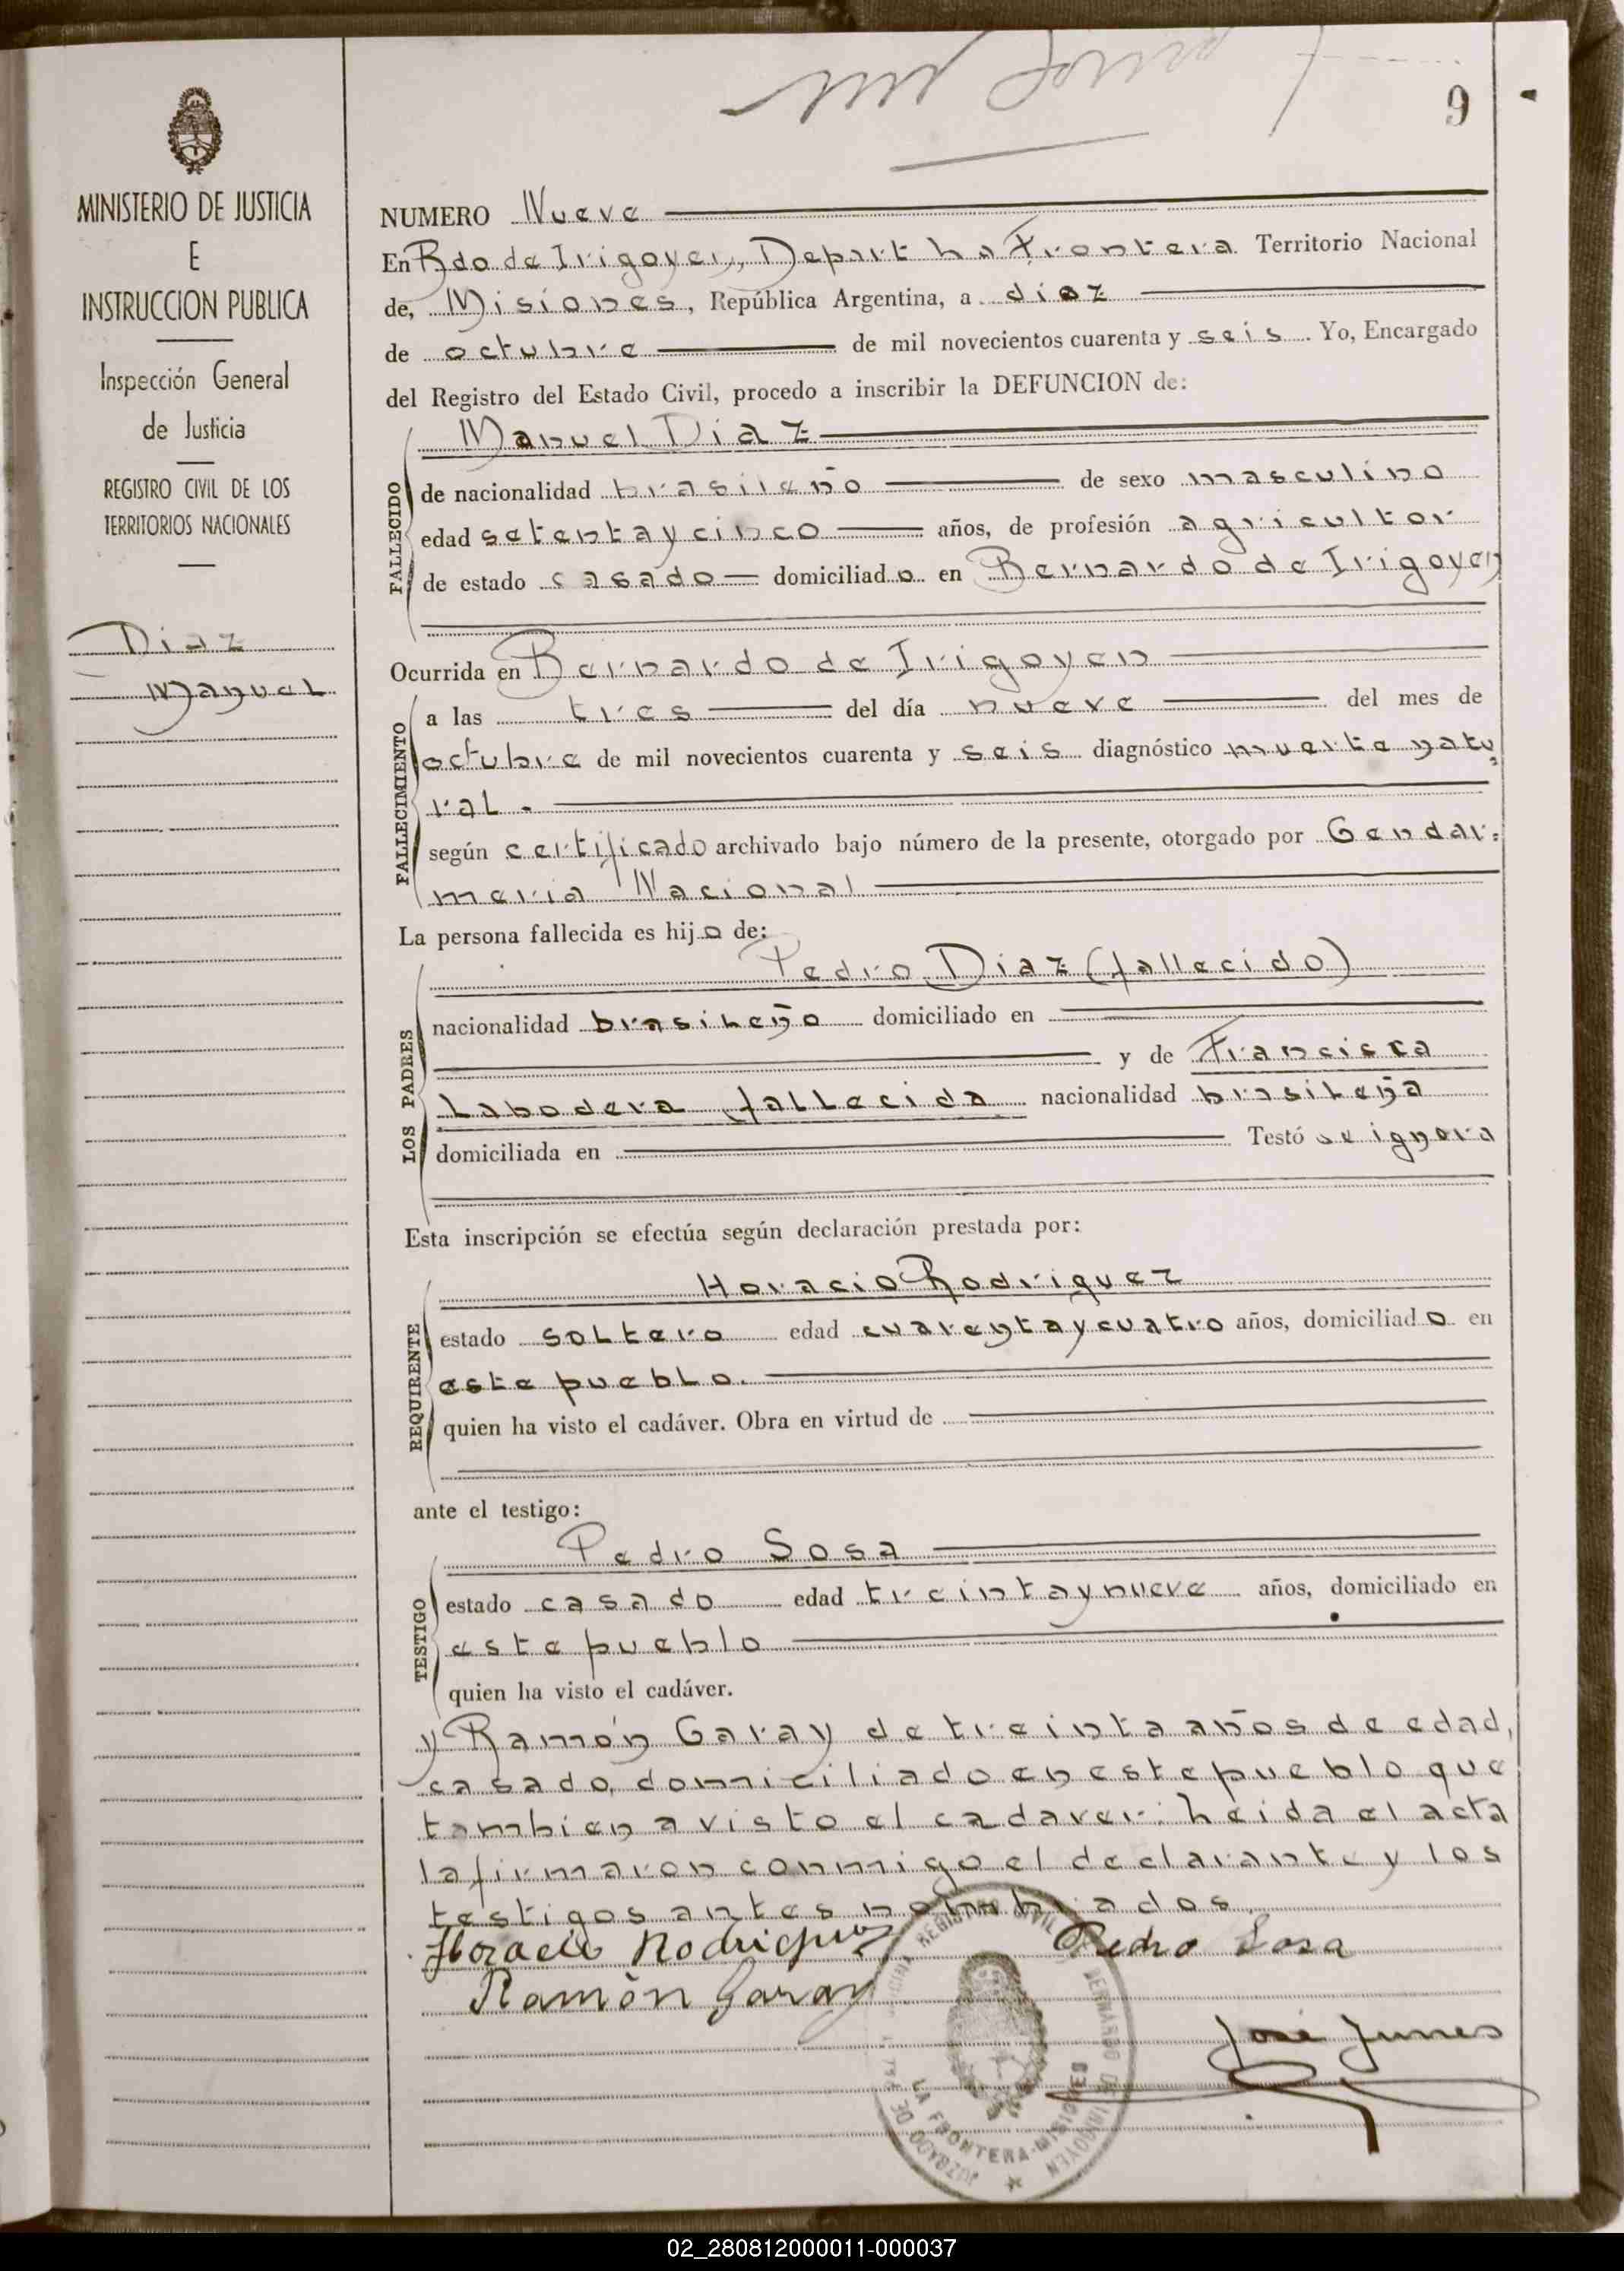 9
MINISTERIO DE JUSTICIA
E
INSTRUCCION PUBLICA
Inspección General
de Justicia
REGISTRO CIVIL DE LOS
TERRITORIOS NACIONALES
Diaz
Manuel
NUMERO Nueve
En Bdo de Irigoyen, Depart La Frontera Territorio Nacional
de, Misiones, República Argentina, a diez
de octubre de mil novecientos cuarenta y seis. Yo, Encargado
del Registro del Estado Civil, procedo a inscribir la DEFUNCION de:
Manuel Diaz
FALLECIDO
de nacionalidad brasileño de sexo masculino
edad setenta y cinco años, de profesión agricultor
de estado casado domiciliado en Bernardo de Irigoyen
Ocurrida en Bernardo de Irigoyen
FALLECIMIENTO
a las tres del día nueve del mes de
octubre de mil novecientos cuarenta y seis diagnóstico muerte natu
ral.
según certificado archivado bajo número de la presente, otorgado por Gendar-
meria Nacional
La persona fallecida es hijo de:
LOS PADRES
Pedro Diaz (fallecido)
nacionalidad brasileño domiciliado en
y de Francisca
Labodera fallecida nacionalidad brasileña
domiciliada en Testó se ignora
Esta inscripción se efectúa según declaración prestada por:
REQUIRENTE
Horacio Rodriguez
estado soltero edad cuarenta y cuatro años, domiciliado en
este pueblo.
quien ha visto el cadáver. Obra en virtud de
ante el testigo:
TESTIGO
Pedro Sosa
estado casado edad treinta y nueve años, domiciliado en
este pueblo
quien ha visto el cadáver.
y Ramón Garay de treinta años de edad,
casado, domiciliado en este pueblo que
tambien a visto el cadaver. Leida el acta
la firmaron conmigo el declarante y los
testigos antes nombrados.
Horacio Rodriguez Pedro Sosa
Ramón Garay
José Junes
REGISTRO CIVIL BERNARDO DE IRIGOYEN
JUZGADO DE PAZ
LA FRONTERA-MISIONES
02_280812000011-000037